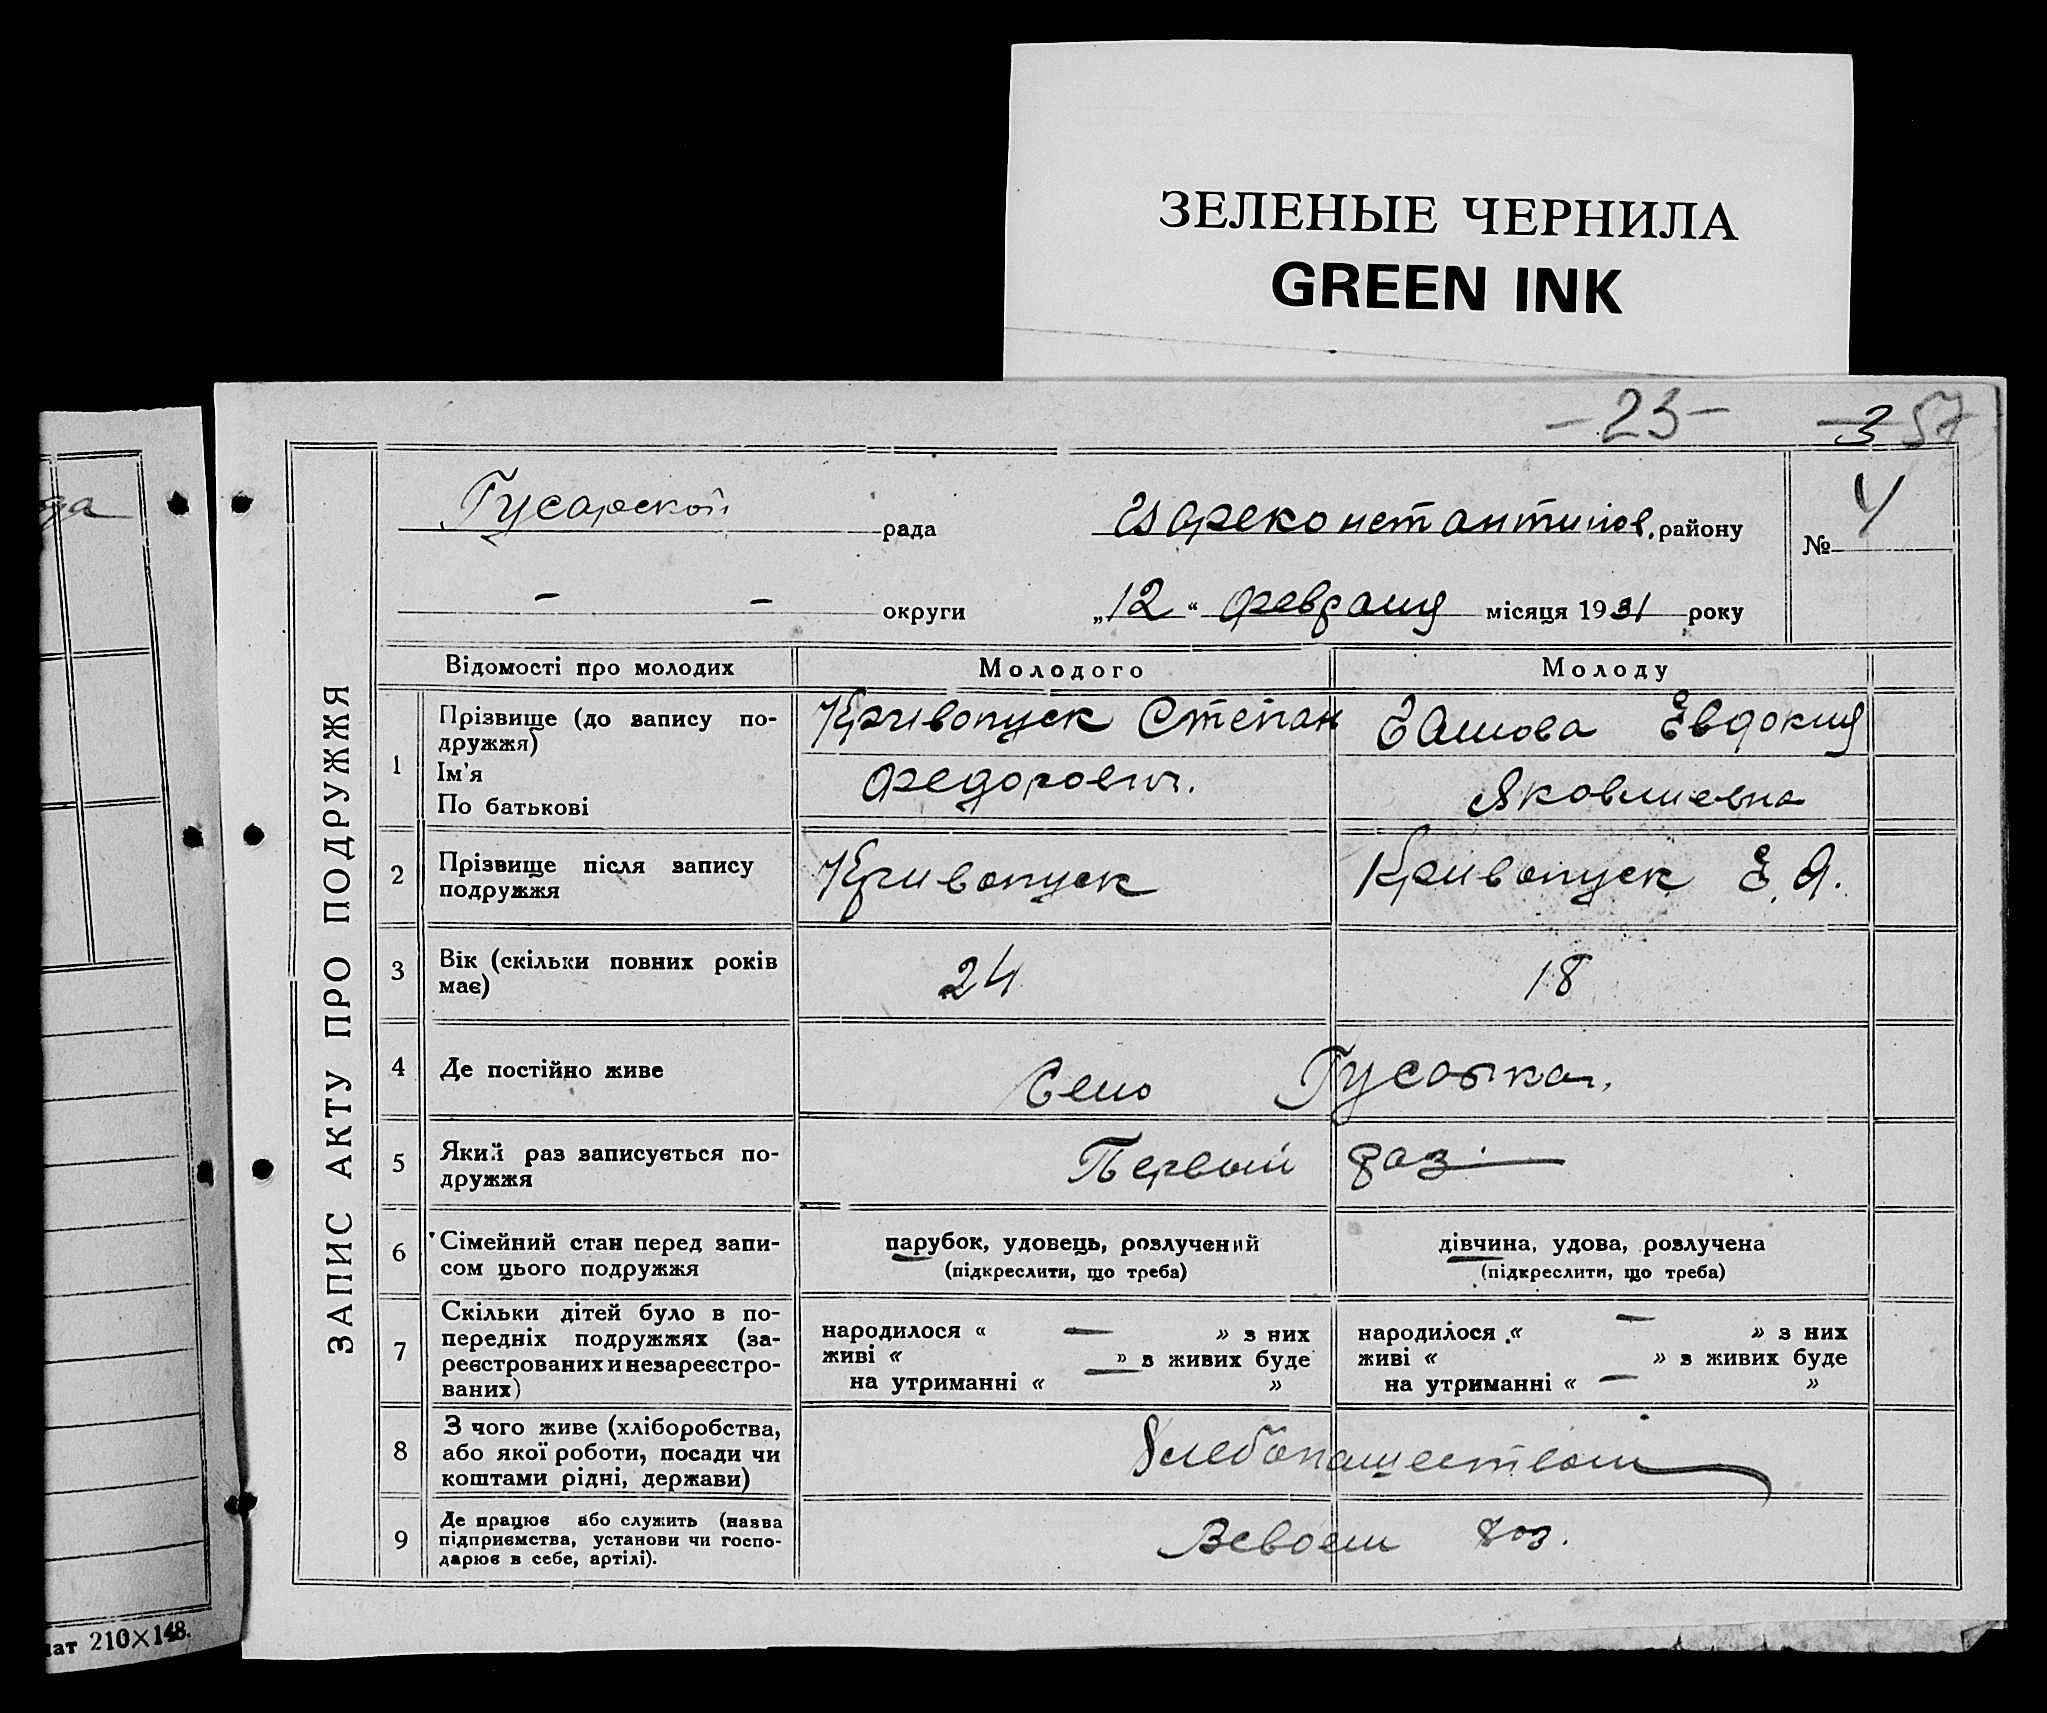 ЗЕЛЕНЫЕ ЧЕРНИЛА
GREEN INK
-23- 3 57
ЗАПИС АКТУ ПРО ПОДРУЖЖЯ
Гусарской рада Цареконстантинов. району № 4
- - округи „12“ февраля місяця 1931 року
Відомості про молодих Молодого Молоду
1 Прізвище (до запису по-
дружжя)
Ім'я
По батькові
Кривопуск Степан
Федорович.
Евдокия
Яковлевна
2 Прізвище після запису
подружжя
Кривопуск Кривопуск Е. Я.
3 Вік (скільки повних років
має)
24 18
4 Де постійно живе Село Гусарка.
5 Який раз записується по-
дружжя
Первый раз.
6 Сімейний стан перед запи-
сом цього подружжя
парубок, удовець, розлучений
(підкреслити, що треба)
дівчина, удова, розлучена
(підкреслити, що треба)
7 Скільки дітей було в по-
передніх подружжях (за-
реєстрованих и незареєстро-
ваних)
народилося « — » з них
живі « » в живих буде
на утриманні « — »
народилося « — » з них
живі « » в живих буде
на утриманні « — »
8 З чого живе (хліборобства,
або якої роботи, посади чи
коштами рідні, держави)
Хлебопашеством
9 Де працює або служить (назва
підприємства, установи чи госпо-
дарює в себе, артілі).
Всвоем хоз.
мат 210×148.